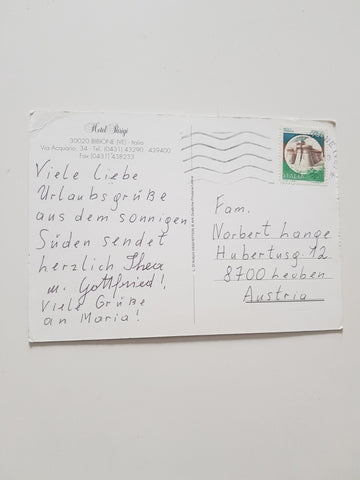 Hotel Parigi
30020 BIBIONE (VE) - Italia
Via Acquario, 34 - Tel. (0431) 43290 - 439400
Fax (0431) 438233
Viele liebe
Urlaubsgrüße
aus dem sonnigen
Süden sendet
herzlich Thea
u. Gottfried!
Viele Grüße
an Maria!
ITALIA
Fam.
Norbert Lange
Hubertusg 12
8700 Leoben
Austria